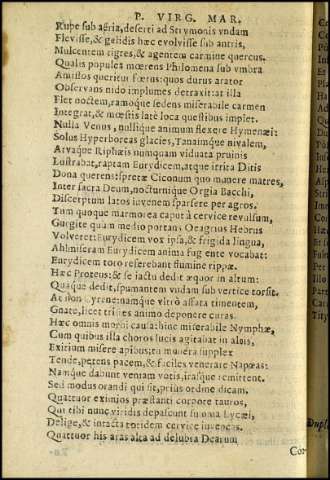 P. VIRG. MAR.
Rupe sub aëria, deserti ad Strymonis vndam
Flevisse, & gelidis hæc evolvisse sub antris,
Mulcentem tigres, & agentem carmine quercus.
Qualis populea mœrens Philomena sub vmbra
Amissos queritur fœtus: quos durus arator
Observans nido implumes detraxit: at illa
Flet noctem, ramoque sedens miserabile carmen
Integrat, & mœstis latè loca questibus implet.
Nulla Venus, nullique animum flexere Hymenæi:
Solus Hyperboreas glacies, Tanaimque nivalem,
Arvaque Riphæis nunquam viduata pruinis
Lustrabat, raptam Eurydicem, atque irrita Ditis
Dona querens: spretæ Ciconum quo munere matres,
Inter sacra Deum, nocturnique Orgia Bacchi,
Discerptum latos iuvenem sparsere per agros.
Tum quoque marmorea caput à cervice revulsum,
Gurgite quum medio portans Oeagrius Hebrus
Volveret: Eurydicem vox ipsa, & frigida lingua,
Ah! miseram Eurydicem anima fugiente vocabat:
Eurydicem toto referebant flumine ripæ.
Hæc Proteus: & se iactu dedit æquor in altum:
Quaque dedit, spumantem vndam sub vertice torsit.
At non Cyrene: namque vltrò affata timentem,
Gnate, licet tristes animo deponere curas.
Hæc omnis morbi causa: hinc miserabile Nymphæ,
Cum quibus illa choros lucis agitabat in altis,
Exitium misere apibus: tu munera supplex
Tende, petens pacem, & faciles venerare Napæas:
Namque dabunt veniam votis, irasque remittent.
Sed modus orandi qui sit, prius ordine dicam.
Quattuor eximios præstanti corpore tauros,
Qui tibi nunc viridis depascunt summa Lycæi,
Delige, & intacta totidem cervice iuvencas.
Quattuor his aras alta ad delubra Dearum
Con